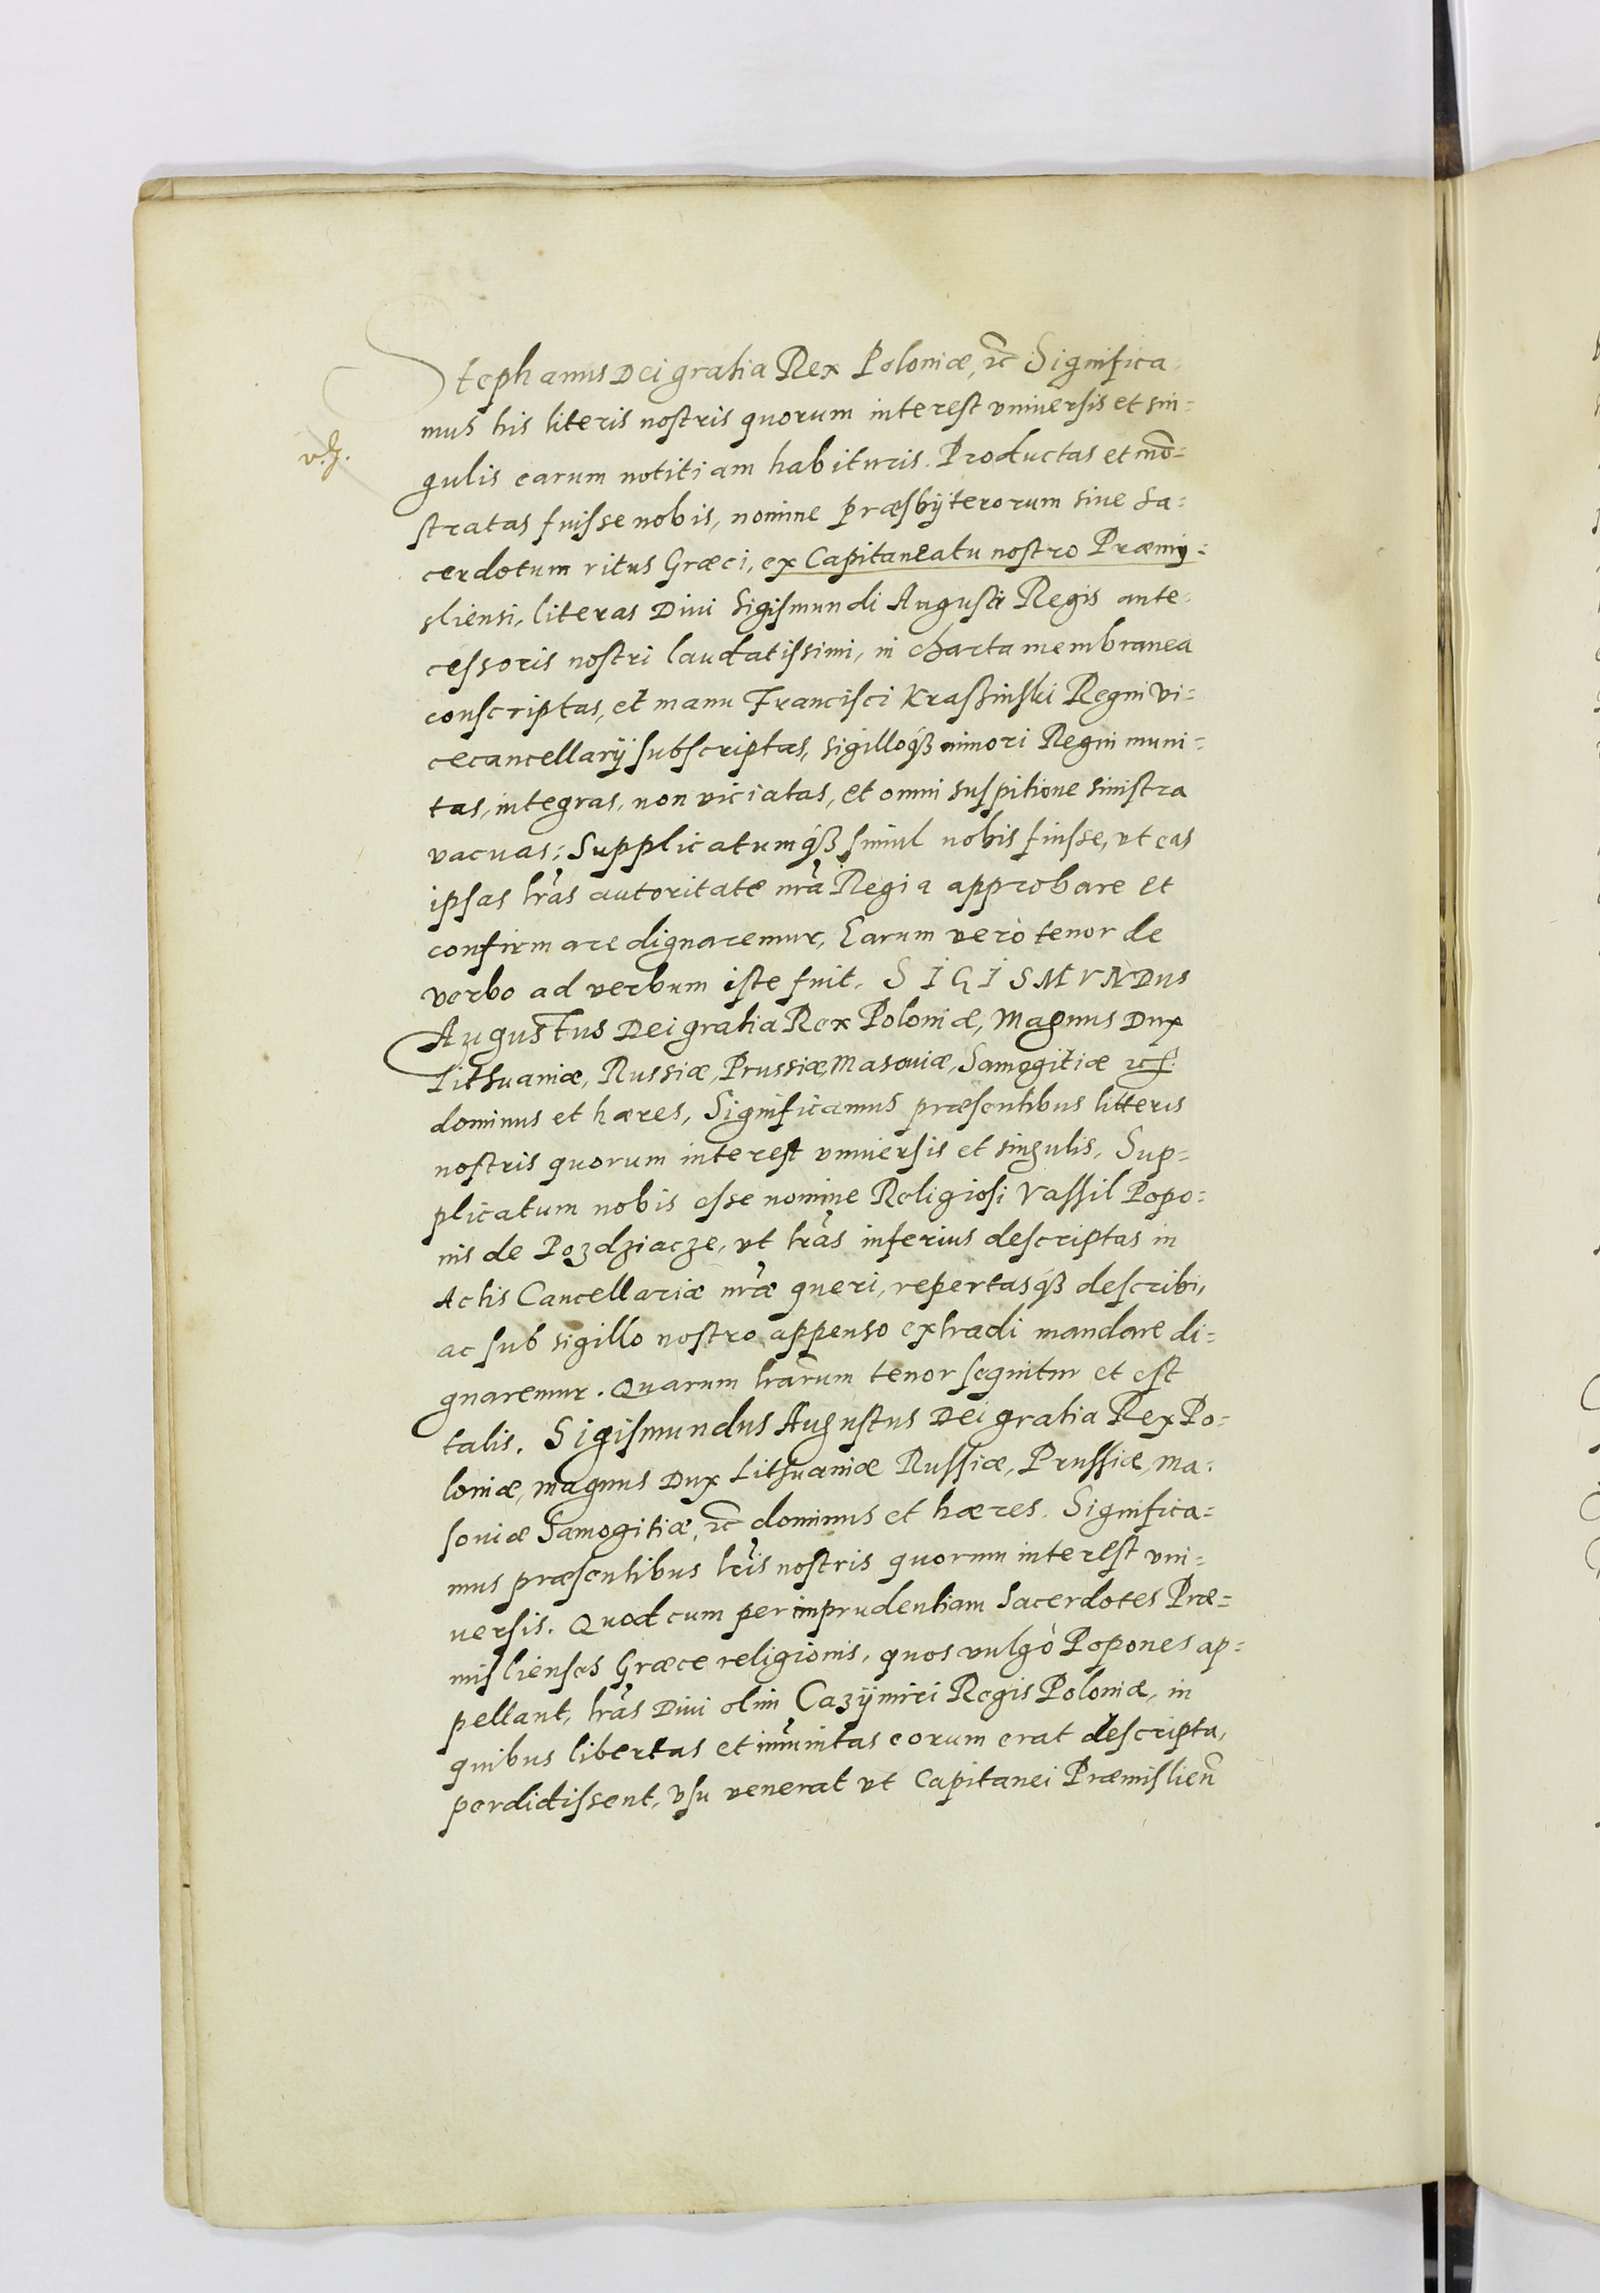 Stephanus Dei gratia Rex Poloniæ, &c Significa-
mus his literis nostris quorum interest vniuersis et sin-
gulis earum notitiam habituris. Productas et mõ-
stratas fuisse nobis, nomine præsbÿterorum siue sa-
cerdotum ritus Græci, ex Capitaneatu nostro Præmy-
sliensi, literas Diui Sigismundi Augusti Regis ante-
cessoris nostri laudatissimi, in charta membranea
conscriptas, et manu Francisci Kraßinski Regni Vi-
cecancellarÿ subscriptas, sigilloqȝ minori Regni muni-
tas, integras, non viciatas, et omni suspitione sinistra
vacuas; Supplicatumqȝ simul nobis fuisse, vt eas
ipsas lrãs autoritate nrã Regia approbare et
confirmare dignaremur, Earum verò tenor de
verbo ad verbum iste fuit. SIGISMVNDus
Augustus Dei gratia Rex Poloniæ, Magnus Dux
Lithuaniæ, Russiæ, Prussiæ, Masouiæ, Samogitiæ &c
dominus et hæres, Significamus præsentibus litteris
nostris quorum interest vniuersis et singulis. Sup-
plicatum nobis esse nomine Religiosi Vassil Popo-
nis de Pozdziacze, vt lrãs inferius descriptas in
Actis Cancellariæ nrãe queri, repertasqȝ describi,
ac sub sigillo nostro appenso extradi mandare di-
gnaremur. Quarum lrãrum tenor sequitur et est
talis. Sigismundus Augustus Dei gratia Rex Po-
loniæ, magnus Dux Lithuaniæ Russiæ, Prussiæ, Ma-
souiæ Samogitiæ, &c dominus et hæres. Significa-
mus præsentibus lrĩs nostris quorum interest vni-
uersis. Quod cum per imprudentiam Sacerdotes Præ-
mislienses Græce religionis, quos vulgò Popones ap-
pellant, lrãs Diui olim Cazÿmiri Regis Poloniæ, in
quibus libertas et im̃unitas eorum erat descripta,
perdidissent, vsu venerat vt Capitanei Præmislieñ